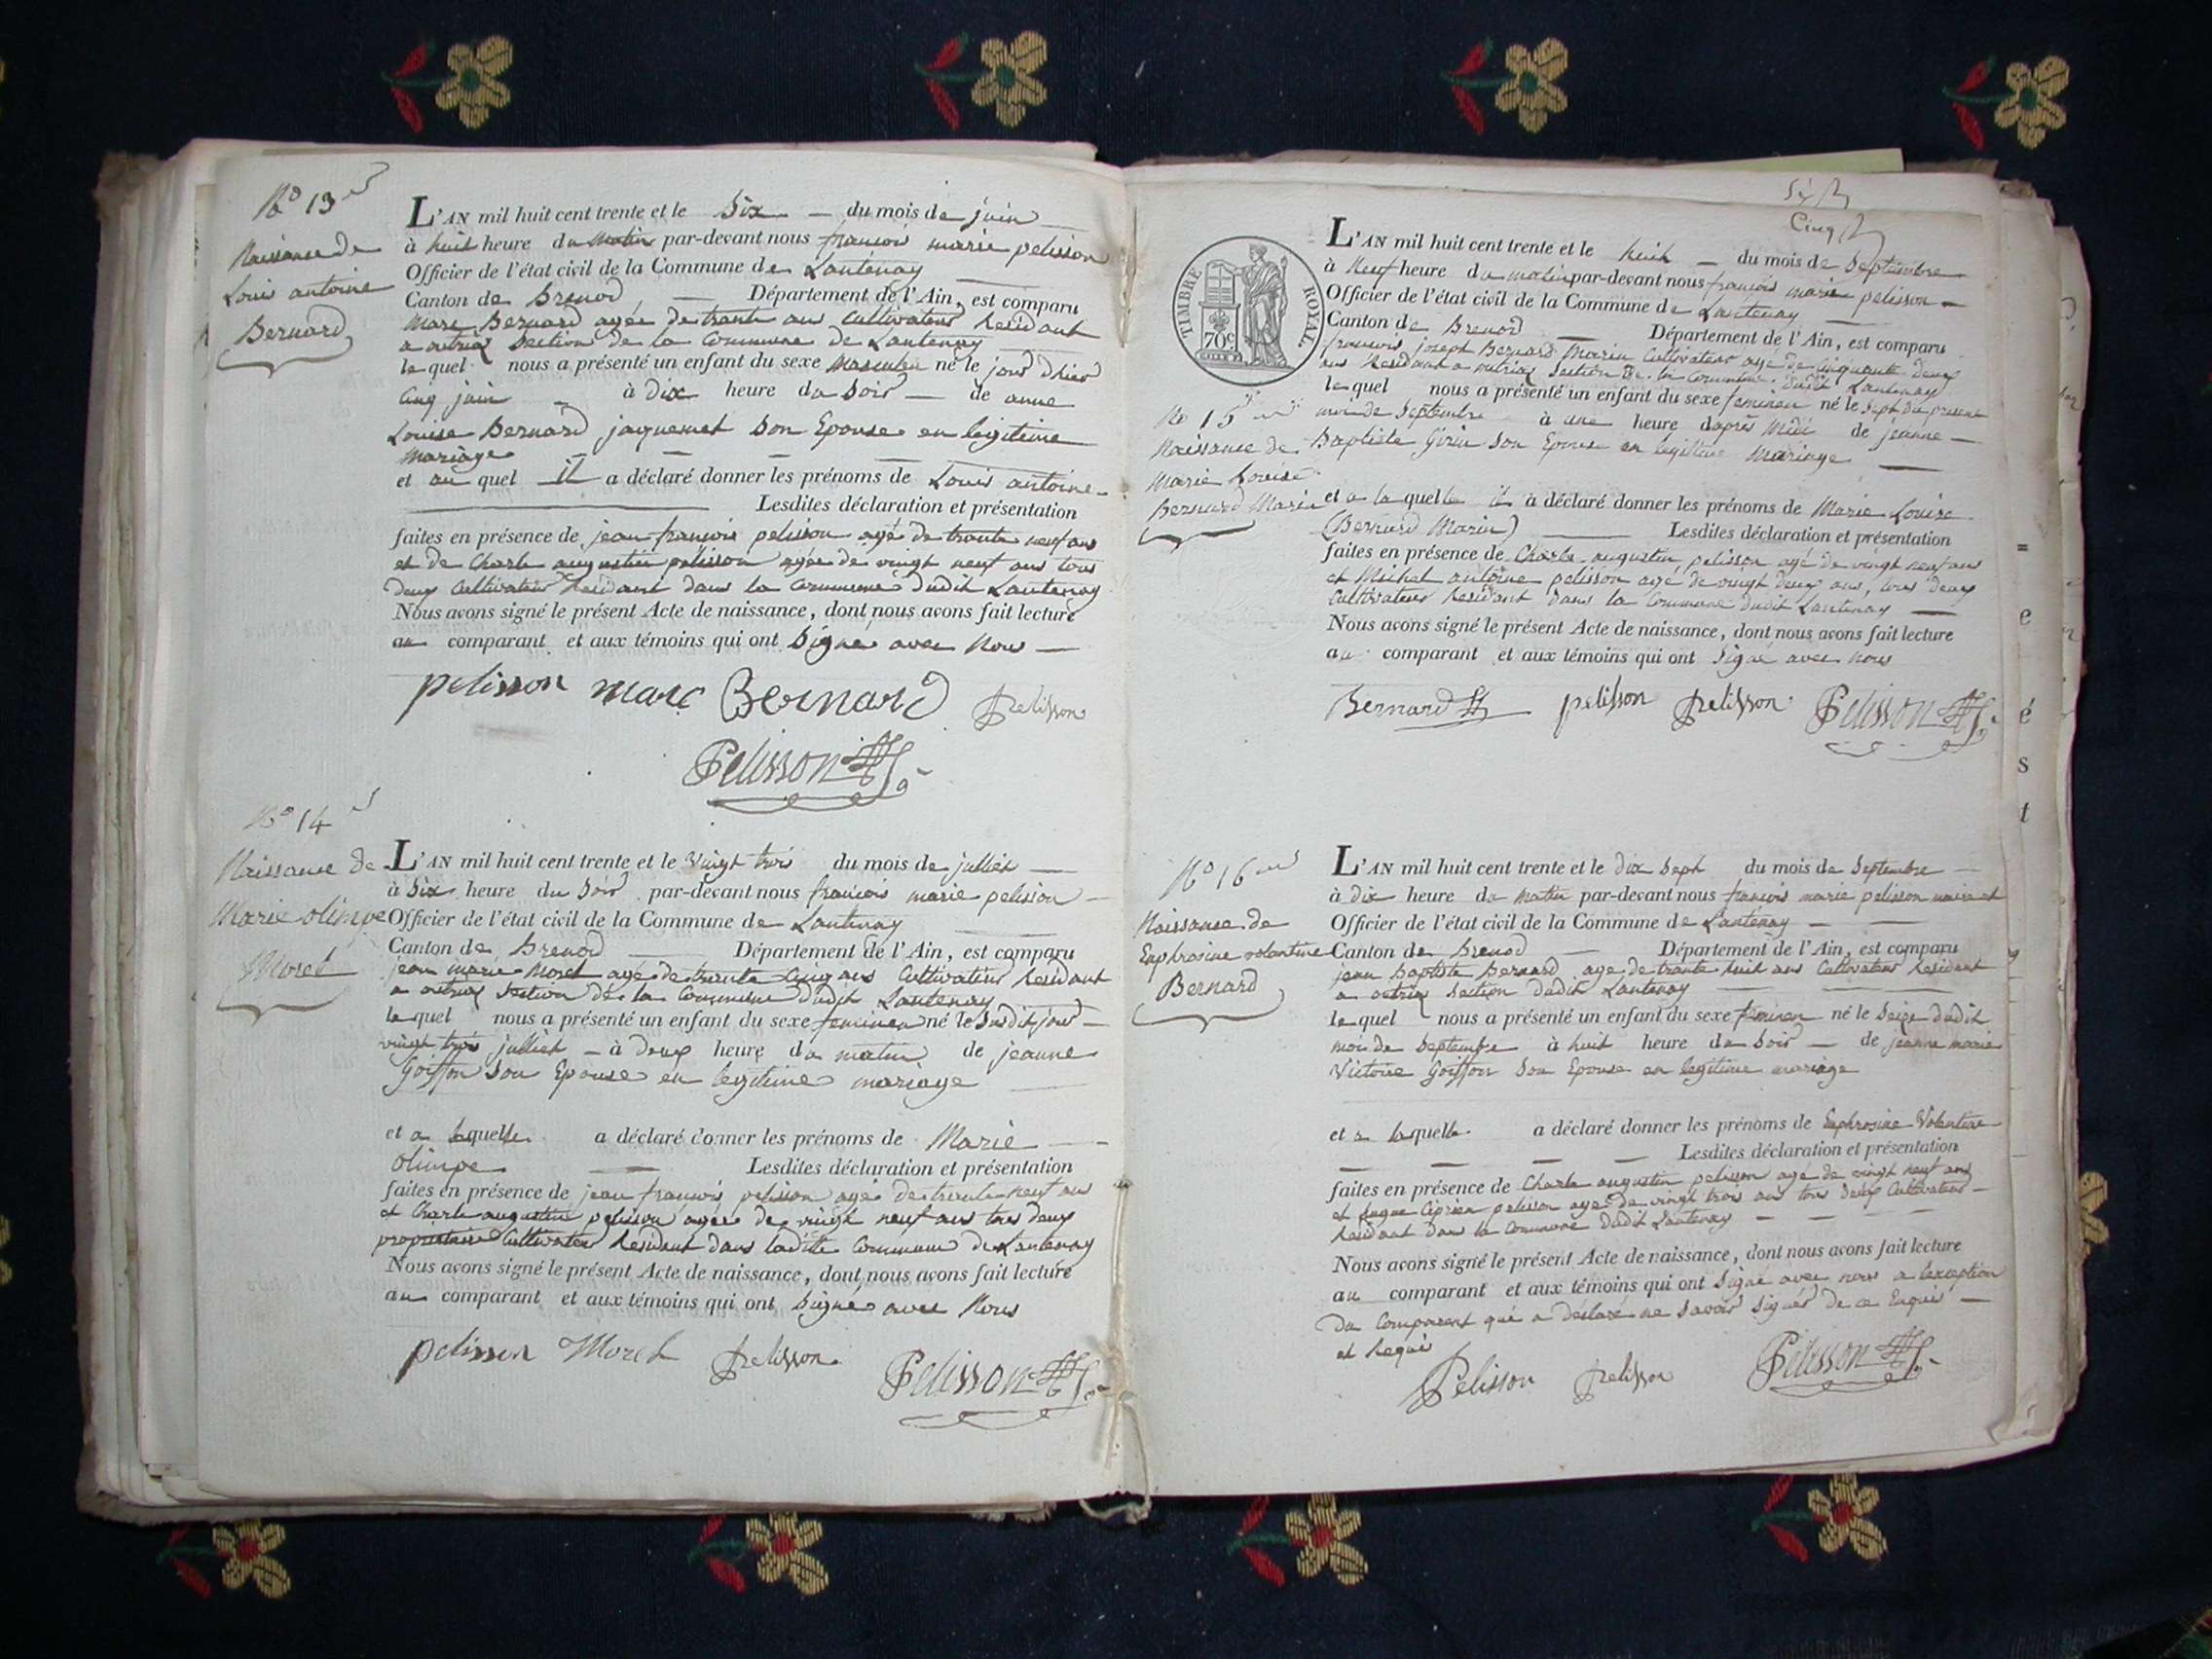 No 13
Naissance de
Louis antoine
Bernard
L'AN mil huit cent trente et le Six du mois de juin
à huit heure du Matin par-devant nous francois marie pelisson
Officier de l'état civil de la Commune de Lantenay
Canton de Brenod Département de l'Ain, est comparu
Marc Bernard agée de trante ans Cultivateur Residant
a outriaz Section de la Commune de Lantenay
lequel nous a présenté un enfant du sexe Masculin né le jour d'hier
Cinq juin à dix heure du Soir de anne
Louise Bernard jaquemet Son Epouse en legitime
Mariage
et au quel il a déclaré donner les prénoms de Louis antoine
Lesdites déclaration et présentation
faites en présence de jean francois pelisson agé de trante neuf ans
et de Charle augustin pelisson agée de vingt neuf ans tous
deux Cultivateur Residant dans la Commune dudit Lantenay
Nous avons signé le présent Acte de naissance, dont nous avons fait lecture
au comparant et aux témoins qui ont Signé avec Nous
pelisson marc Bernard pelisson
Pelisson
No 14
Naissance de
Marie olimpe
Moret
L'AN mil huit cent trente et le Vingt trois du mois de julliet
à Six heure du Soir par-devant nous francois marie pelisson
Officier de l'état civil de la Commune de Lantenay
Canton de Brenod Département de l'Ain, est comparu
jean marie Moret agé de trante Cinq ans Cultivateur Residant
a outriaz Section de la Commune dudit Lantenay
lequel nous a présenté un enfant du sexe feminen né le Susdit jour
vingt trois julliet à deux heure du matin de jeanne
Goiffon Son Epouse en legitime mariage
et a laquelle a déclaré donner les prénoms de Marie
olimpe Lesdites déclaration et présentation
faites en présence de jean francois pelisson agé de trante neuf ans
et Charle augustin pelisson agée de vingt neuf ans tous deux
propriétaire Cultivateur Residant dans ladite Commune de Lantenay
Nous avons signé le présent Acte de naissance, dont nous avons fait lecture
au comparant et aux témoins qui ont Signé avec Nous
pelisson Moret pelisson
Pelisson
Cinq
TIMBRE ROYAL
70c
No 15
Naissance de
Marie Louise
Bernard Marin
L'AN mil huit cent trente et le huit du mois de Septembre
à Neuf heure du matin par-devant nous francois marie pelisson
Officier de l'état civil de la Commune de Lantenay
Canton de Brenod Département de l'Ain, est comparu
francois joseph Bernard Marin Cultivateur agé de Cinquante deux
ans Residant a outriaz Section de la Commune dudit Lantenay
lequel nous a présenté un enfant du sexe feminen né le Sept du present
moi de Septembre à une heure d'après Midi de jeanne
Baptiste Girin Son Epouse en legitime Mariage
et a la quelle il a déclaré donner les prénoms de Marie Louise
(Bernard Marin) Lesdites déclaration et présentation
faites en présence de Charle augustin pelisson agé de vingt neuf ans
et Michel antoine pelisson agé de vingt deux ans, tous deux
Cultivateur Residant dans la Commune dudit Lantenay
Nous avons signé le présent Acte de naissance, dont nous avons fait lecture
au comparant et aux témoins qui ont Signé avec nous
Bernard pelisson pelisson Pelisson
No 16
Naissance de
Euphrosine volantine
Bernard
L'AN mil huit cent trente et le dix Sept du mois de Septembre
à dix heure du Matin par-devant nous francois marie pelisson maire et
Officier de l'état civil de la Commune de Lantenay
Canton de Brenod Département de l'Ain, est comparu
jean Baptiste Bernard agé de trante huit ans Cultivateur Residant
a outriaz Section dudit Lantenay
lequel nous a présenté un enfant du sexe feminen né le Seize dudit
moi de Septembre à huit heure du Soir de jeanne marie
Victoire Goiffon Son Epouse en legitime mariage
et a laquelle a déclaré donner les prénoms de Euphrosine Volantine
Lesdites déclaration et présentation
faites en présence de Charle augustin pelisson agé de vingt neuf ans
et Ciprien pelisson agé de vingt trois ans tous deux Cultivateur
Residant dans la Commune dudit Lantenay
Nous avons signé le présent Acte de naissance, dont nous avons fait lecture
au comparant et aux témoins qui ont Signé avec nous a l'exception
du Comparant qui a déclaré ne Savoir Signer de ce Enquis
et Requis
Pelisson pelisson Pelisson
e
é
s
t